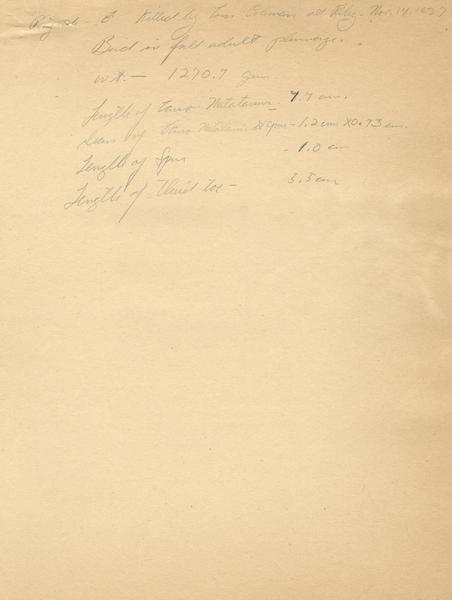 ♂ Killed by Tom Coleman at Riley - Nov. 14, 1937
Bird in full adult plumage.
wt. — 1270.7 gm
Length of tarso Metatarsus 7.7 cm.
tarso Metatarsus at Spur - 1.2 cm X 0.73 cm.
Length of Spur - 1.0 cm
Length of Third Toe - 5.5 cm